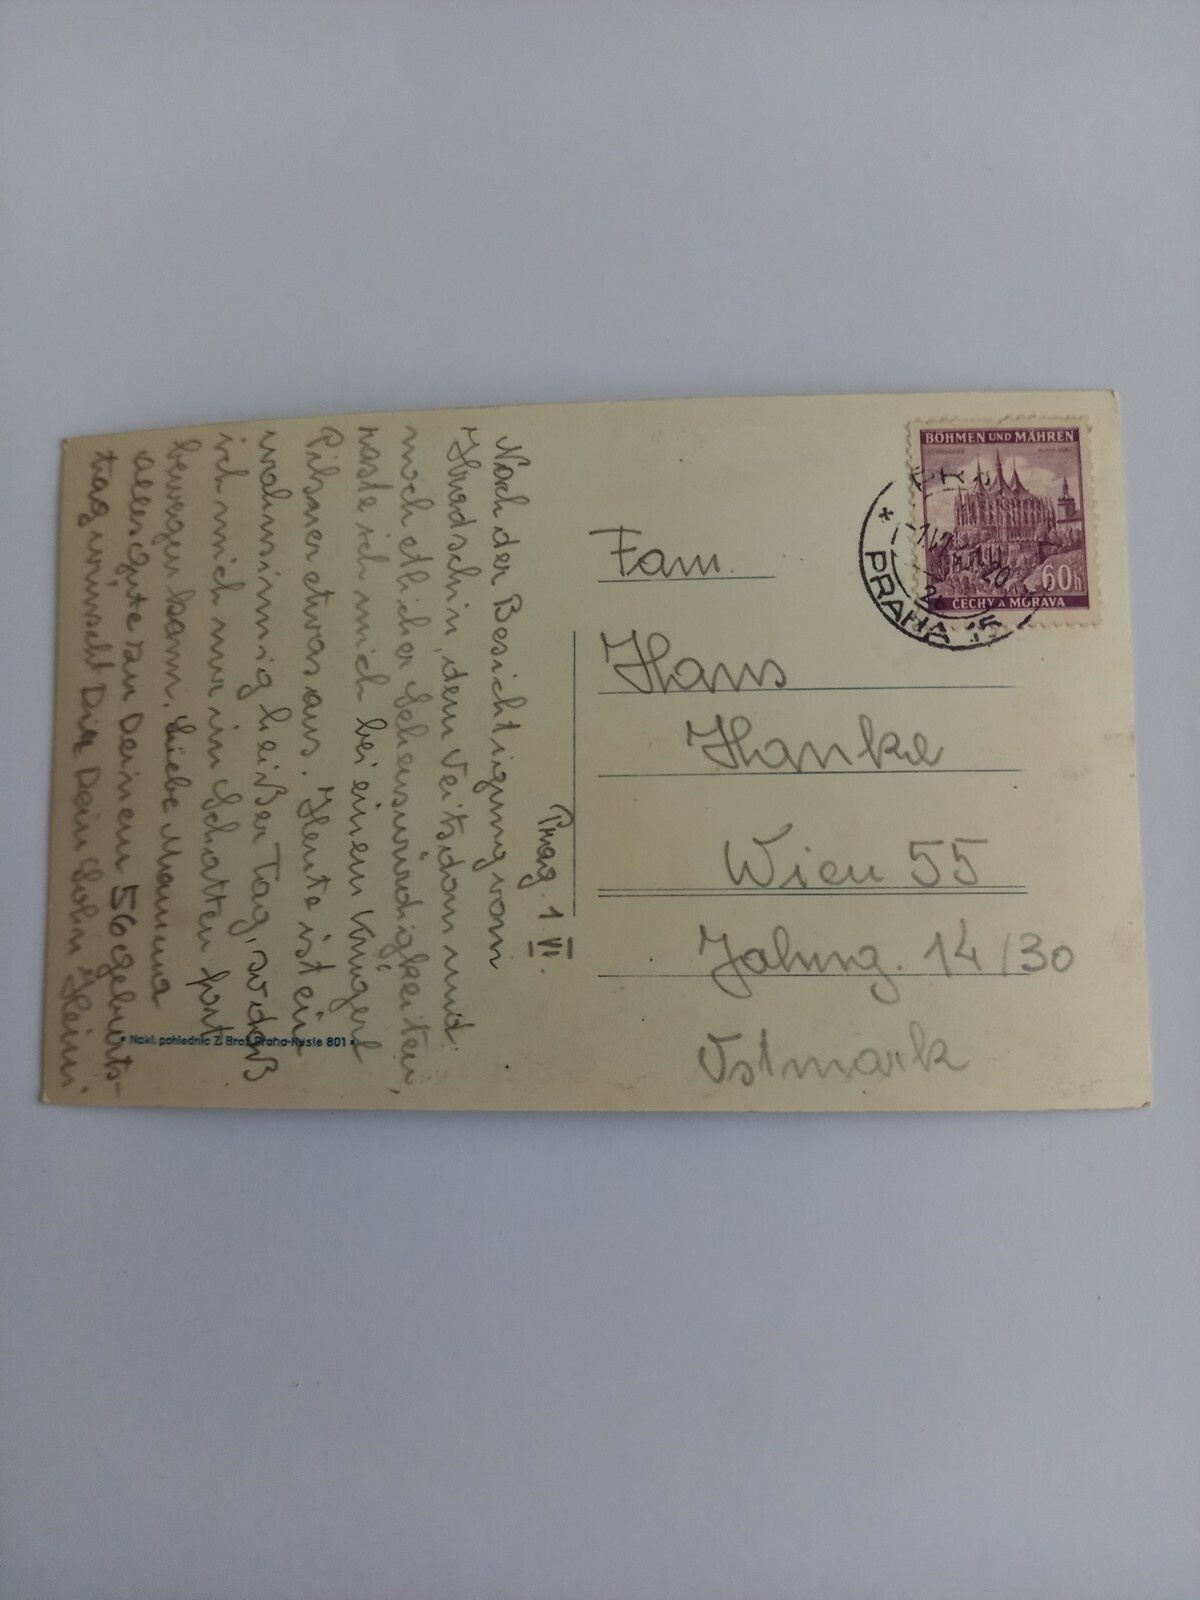 Prag. 1 VI.
Nach der Besichtigung vom
Hradschin, dem Veitsdom und
noch etlicher Sehenswürdigkeiten,
raste ich mich bei einem Krügerl
Pilsner etwas aus. Heute ist ein
wahnsinnig heißer Tag, so daß
ich mich nur im Schatten fort
bewegen kann. Liebe Mamma
alles Gute zu Deinem 56 Geburts-
tag wünscht Dir Dein Sohn Heini.
Nakl. pohlednic Z. Brož, Praha-Nusle 801
BÖHMEN UND MÄHREN
60h
ČECHY A MORAVA
PRAHA 15
Fam.
Hans
Hanke
Wien 55
Jahng. 14/30
Ostmark